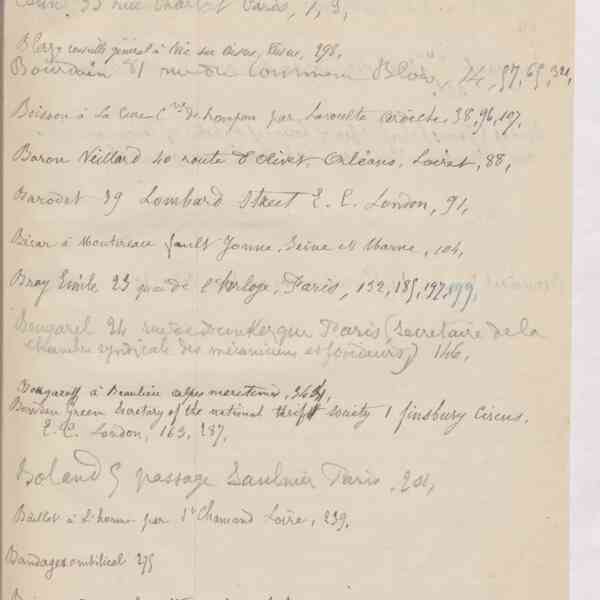 33 rue Charlot Paris, 1, 3,
conseille général à Vic sur Aisne, Aisne, 298,
Bourdain 81 rue du Commerce Blois, 24, 57, 65, 321,
Boisson à La par Lavoulte ardèche, 38, 96, 107,
Baron Veillard 40 route d'olivet, Orléans, Loiret, 88,
Barodet 39 Lombard Street E. C. London, 91,
Bécar à Montereau fault Yonne, Seine et Marne, 104,
Bray Emile 23 quai de l'horloge, Paris, 132, 185, 197, 199,
24 rue de Dunkerque Paris (Secrétaire de la
chambre syndicale des mécaniciens et fondeurs) 146,
à Beaulieu alpes maretimes,
Green Secretary of the national thrift society 1 finsbury Circus.
E. C. London, 163, 287,
Boland 5 passage Saulnier Paris, 201,
à L'horme par St Chamond Loire, 239,
Bandages ombilical 275